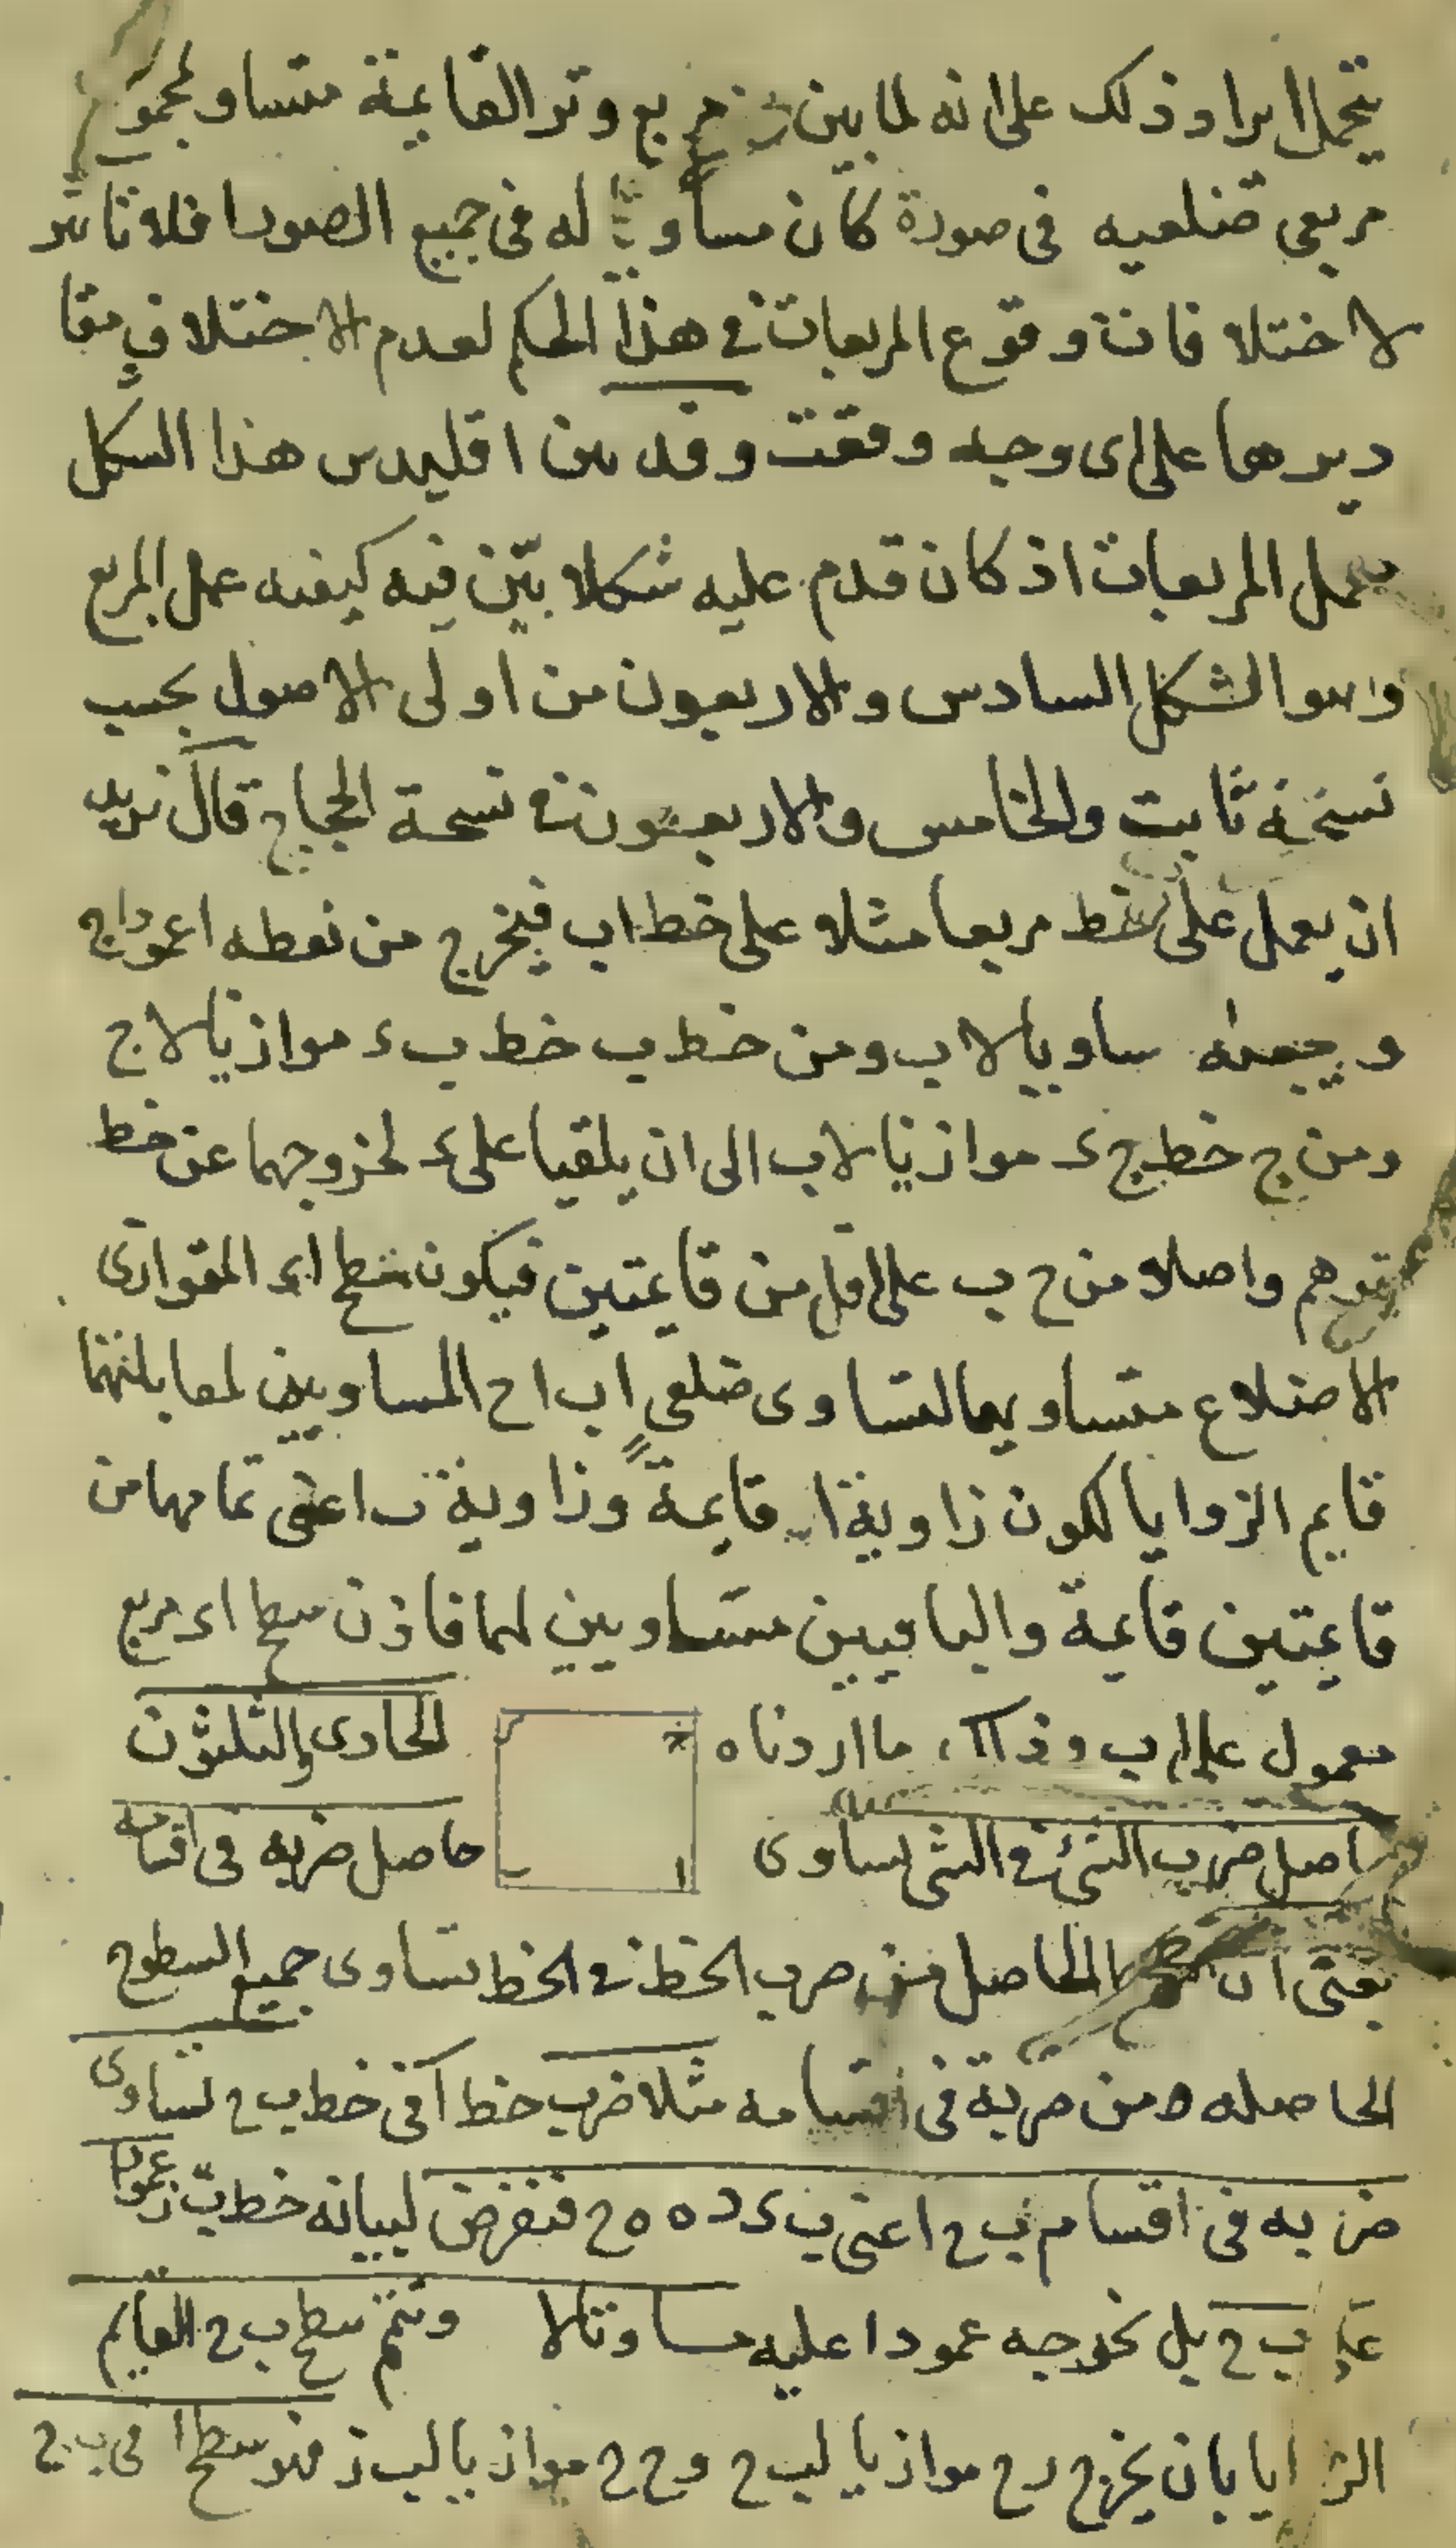 يتحمل ايرا وذلك على انه لما بين مربع وتر القايمة متساو لمجموع
مربعى ضلعيه فى صورة كان مساويا له فى جميع الصور فلا تاثير
لاختلافات وقوع المربعات فى هذا الحكم لعدم الاختلاف فى مقا
ديرها على اى وجه وقعت وقد بين اقليدس هذا الشكل
بعمل المربعات اذ كان قدم عليه شكلا بيّن فيه كيفيه عمل المربع
وهو الشكل السادس والاربعون من اولى الاصول بحسب
نسخة ثابت والخامس والاربعون نسخة الحجاج قال نريد
ان يعمل على خط مربعا مثلا على خط اب فيخرج من نقطه ا عمود اج
و يجعله ساويا لاب ومن خط ب خط ب د موازيا لاج
ومن ج خط ج د موازيا لاب الى ان يلقيا على د لخروجهما عن خط
يتوهم واصلا من ح ب على اقل من قايمتين فيكون سطح اد المتوازى
الاضلاع متساويها لتساوى ضلعى اب اح المساويين لمقابلتهما
قايم الزوايا لكون زاوية ا قايمة وزاوية ب اعنى تمامها من
قايمتين قايمة والباقيين متساويين لهما فاذن سطح اد مربع
معمول على اب وذلك ما اردناه الحادى والثلثون
حاصل ضرب الشئ فى الشى يساوى حاصل ضربه فى اقسامه
يعنى ان سطح الحاصل من ضرب الخط فى الخط يساوى جميع السطوح
الحاصله من ضربه فى اقسامه مثلا ضرب خط ا فى خط ب ح يساوى
ضربه فى اقسام ب ح اعنى ب د د ه ه ح فنفرض لبيانه خط ب ز عمودا
على ب ح بل نخرجه عمودا عليه مساويا لا ونتمم سطح ب ح القايم
الزوايا بان يخرج ز ح موازيا لب ح و ح ح موازيا لب ز فهو سطح ا فى ب ح